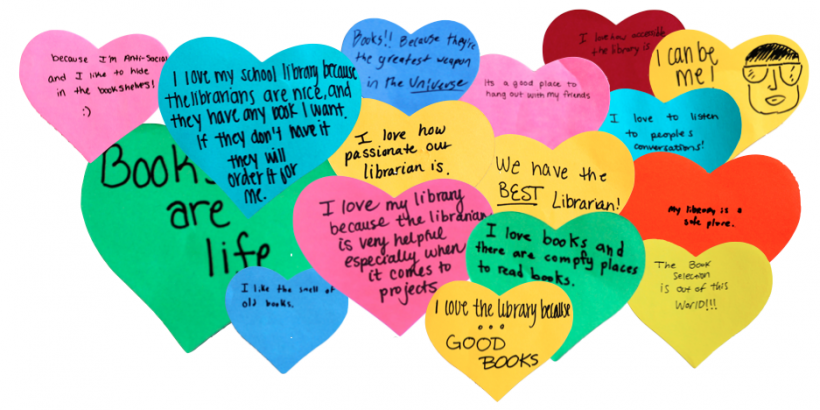 because I'm Anti-Social
and I like to hide
in the bookshelves!
:)
I love my school library because
the librarians are nice, and
they have any book I want.
If they don't have it
they will
order it for
me.
Books!! Because they're
the greatest weapon
in the Universe
I love how accessible
the library is
I can be
me!
Its a good place to
hang out with my friends
I love to listen
to peoples
conversations!
I love how
passionate our
librarian is.
We have the
BEST Librarian!
Books
are
life
I love my library
because the librarian
is very helpful
especially when
it comes to
projects
My library is a
safe place.
I love books and
there are compfy places
to read books.
The Book
Selection
is out of this
World!!!
I like the smell of
old books.
I love the library because
...
GOOD
BOOKS